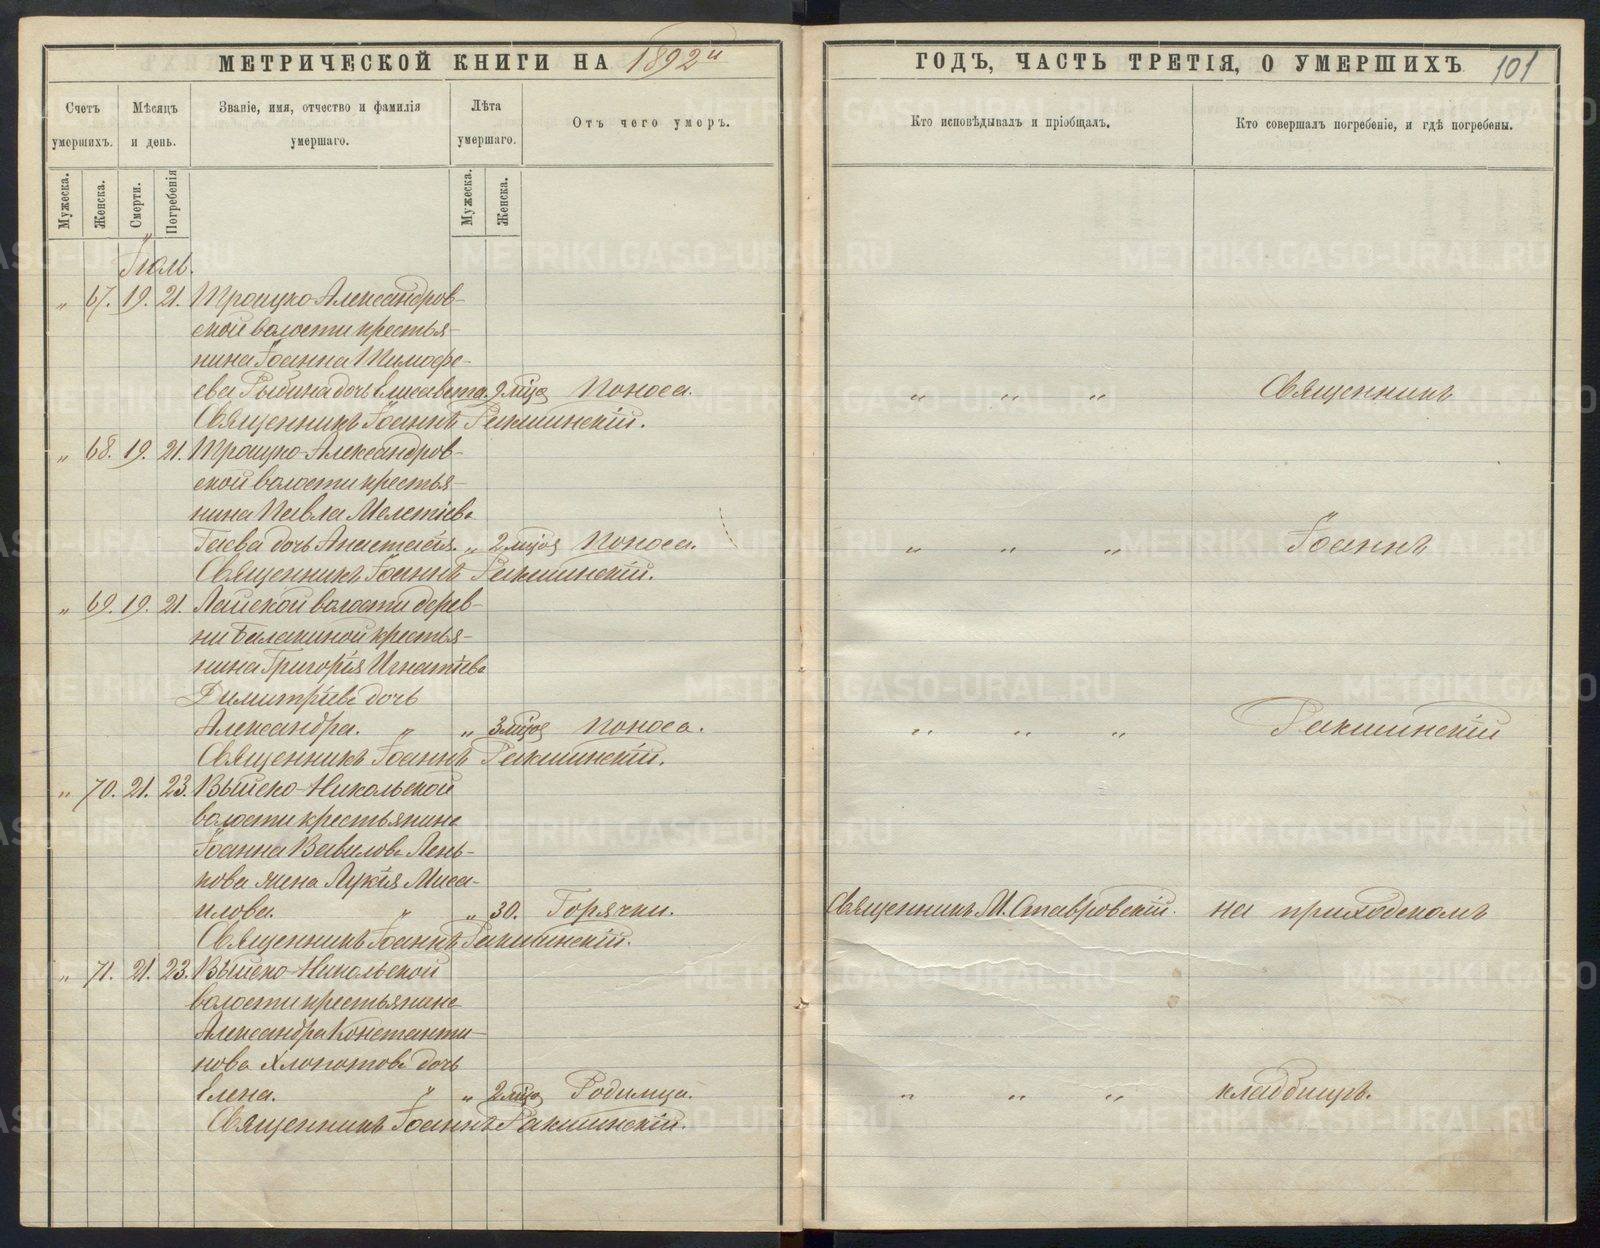 МЕТРИЧЕСКОЙ КНИГИ НА 1892й
Счетъ умершихъ.
Мѣсяцъ и день.
Званіе, имя, отчество и фамилія умершаго.
Лѣта умершаго.
Отъ чего умеръ.
Мужеска.
Женска.
Смерти.
Погребенія
Мужеска.
Женска.
Іюль.
„ 67. 19. 21. Троицко-Александров-
ской волости крестья-
нина Іоанна Тимофе-
ева Рыбина дочь Елисавета. 2 мѣся Поноса.
Священникъ Іоаннъ Ракшинскій.
„ 68. 19. 21. Троицко-Александров-
ской волости крестья-
нина Павла Мелетіева
Гаева дочь Анастасія. „ 2 мѣся Поноса.
Священникъ Іоаннъ Ракшинскій.
„ 69. 19. 21. Лайской волости дерев-
ни Балакиной крестья-
нина Григорія Игнатіева
Димитріева дочь
Александра. „ „ 3 мѣся Поноса.
Священникъ Іоаннъ Ракшинскій.
„ 70. 21. 23. Выйско-Никольской
волости крестьянина
Іоанна Вавилова Лень-
кова жена Лукія Миса-
илова. „ „ 30. Горячки.
Священникъ Іоаннъ Ракшинскій.
„ 71. 21. 23. Выйско-Никольской
волости крестьянина
Александра Константи-
нова Хлопотова дочь
Елена. „ „ 2 мѣся Родимца.
Священникъ Іоаннъ Ракшинскій.
ГОДЪ, ЧАСТЬ ТРЕТІЯ, О УМЕРШИХЪ 101
Кто исповѣдывалъ и пріобщалъ.
Кто совершалъ погребеніе, и гдѣ погребены.
„ „ „ Священникъ
„ „ „ Іоаннъ
„ „ „ Ракшинскій
Священникъ М. Ставровскій. на приходскомъ
„ „ „ кладбищѣ.
METRIKI.GASO-URAL.RU